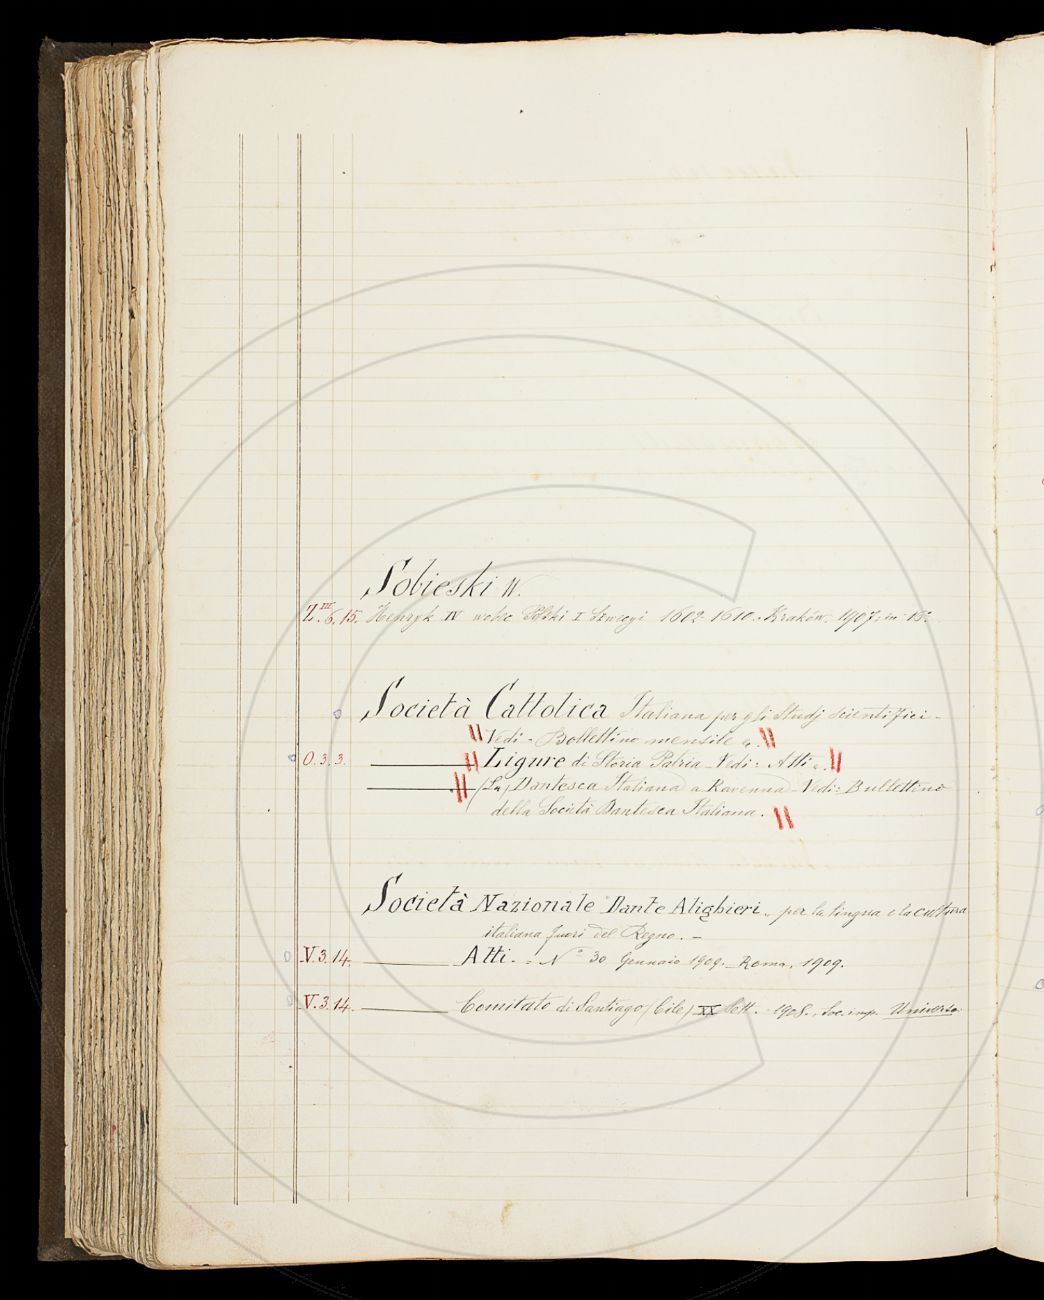 Sobieski W.
Z.III.6.15. Henryk IV wobec Polski I Szwecyi 1602-1610.- Kraków. 1907; in-
Società Cattolica Italiana per gli Studj scientifici -
Vedi - Bollettino mensile
O.3.3. Ligure di Storia Patria - Vedi: Atti
(La) Dantesca Italiana a Ravenna - Vedi: Bullettino
della Società Dantesca Italiana.
Società Nazionale "Dante Alighieri" per la lingua e la cultura
italiana fuori del Regno. -
V.3.14. Atti. - N° 30 Gennaio 1909. Roma, 1909.
V.3.14. Comitato di Santiago (Cile) XX Sett. 1908., Soc. imp. Universo